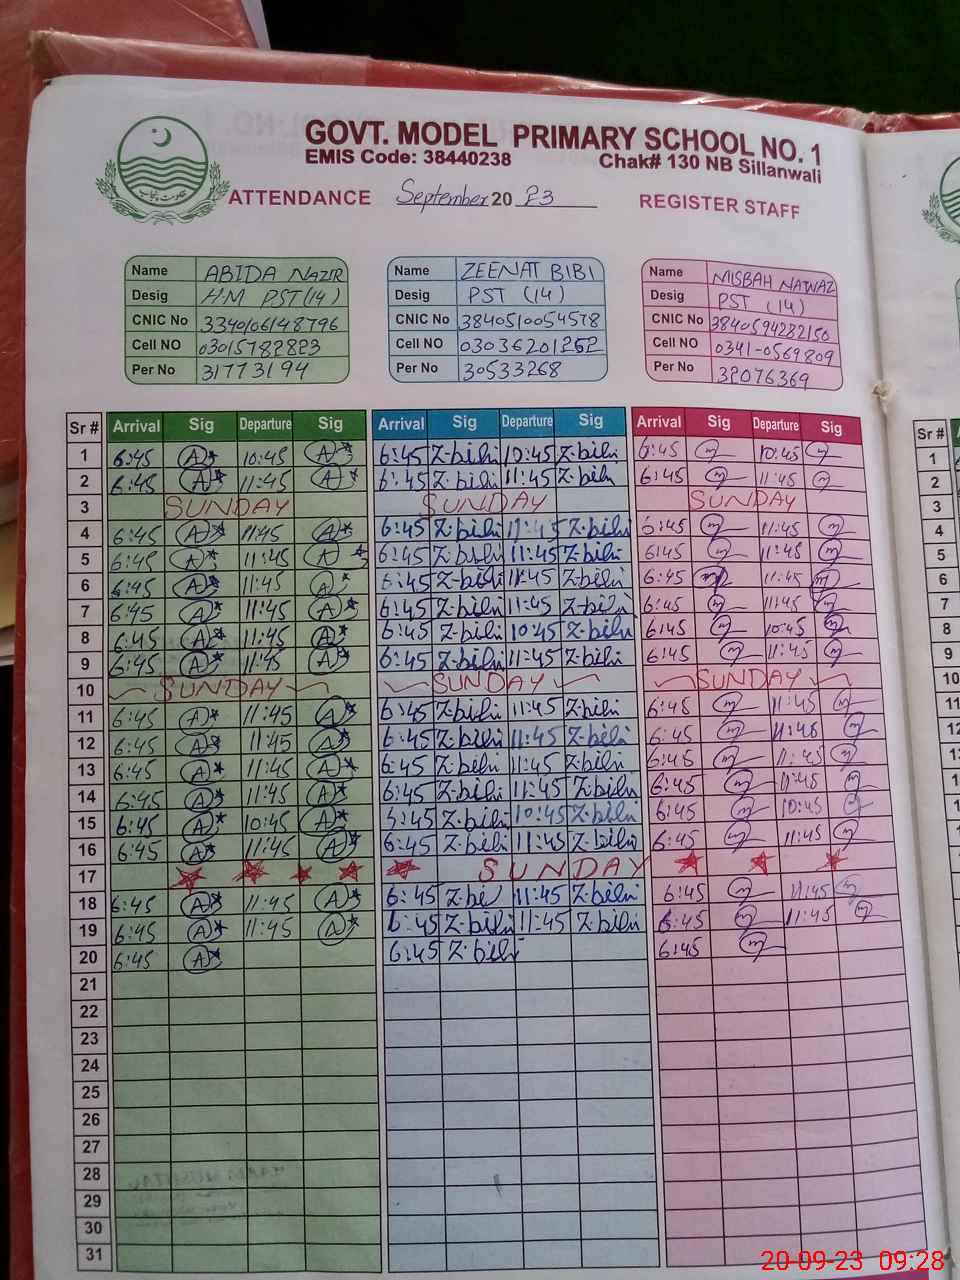 GOVT. MODEL PRIMARY SCHOOL NO. 1
EMIS Code: 38440238 Chak# 130 NB Sillanwali
ATTENDANCE September 20 23 REGISTER STAFF
Name ABIDA NAZIR Name ZEENAT BIBI Name MISBAH NAWAZ
Desig H.M PST(14) Desig PST (14) Desig PST (14)
CNIC No 3340106148796 CNIC No 3840510054578 CNIC No 3840594282150
Cell NO 03015782823 Cell NO 03036201252 Cell NO 0341-0569809
Per No 31773194 Per No 30533268 Per No 32076369
Sr # Arrival Sig Departure Sig Arrival Sig Departure Sig Arrival Sig Departure Sig Sr #
1 6:45 A 10:45 A 6:45 Z.bibi 10:45 Z.bibi 6:45 m 10:45 m 1
2 6:45 A 11:45 A 6:45 Z.bibi 11:45 Z.bibi 6:45 m 11:45 m 2
3 SUNDAY SUNDAY SUNDAY 3
4 6:45 A 11:45 A 6:45 Z.bibi 11:45 Z.bibi 6:45 m 11:45 m 4
5 6:45 A 11:45 A 6:45 Z.bibi 11:45 Z.bibi 6:45 m 11:45 m 5
6 6:45 A 11:45 A 6:45 Z.bibi 11:45 Z.bibi 6:45 m 11:45 m 6
7 6:45 A 11:45 A 6:45 Z.bibi 11:45 Z.bibi 6:45 m 11:45 m 7
8 6:45 A 11:45 A 6:45 Z.bibi 10:45 Z.bibi 6:45 m 10:45 m 8
9 6:45 A 11:45 A 6:45 Z.bibi 11:45 Z.bibi 6:45 m 11:45 m 9
10 SUNDAY SUNDAY SUNDAY 10
11 6:45 A 11:45 A 6:45 Z.bibi 11:45 Z.bibi 6:45 m 11:45 m 11
12 6:45 A 11:45 A 6:45 Z.bibi 11:45 Z.bibi 6:45 m 11:45 m
13 6:45 A 11:45 A 6:45 Z.bibi 11:45 Z.bibi 6:45 m 11:45 m
14 6:45 A 11:45 A 6:45 Z.bibi 11:45 Z.bibi 6:45 m 11:45 m
15 6:45 A 10:45 A 6:45 Z.bibi 10:45 Z.bibi 6:45 m 10:45 m
16 6:45 A 11:45 A 6:45 Z.bibi 11:45 Z.bibi 6:45 m 11:45 m
17 SUNDAY
18 6:45 A 11:45 A 6:45 Z.bi 11:45 Z.bibi 6:45 m 11:45 m
19 6:45 A 11:45 A 6:45 Z.bibi 11:45 Z.bibi 6:45 m 11:45 m
20 6:45 A 6:45 Z.bibi 6:45 m
21
22
23
24
25
26
27
28
29
30
31
20-09-23 09:28